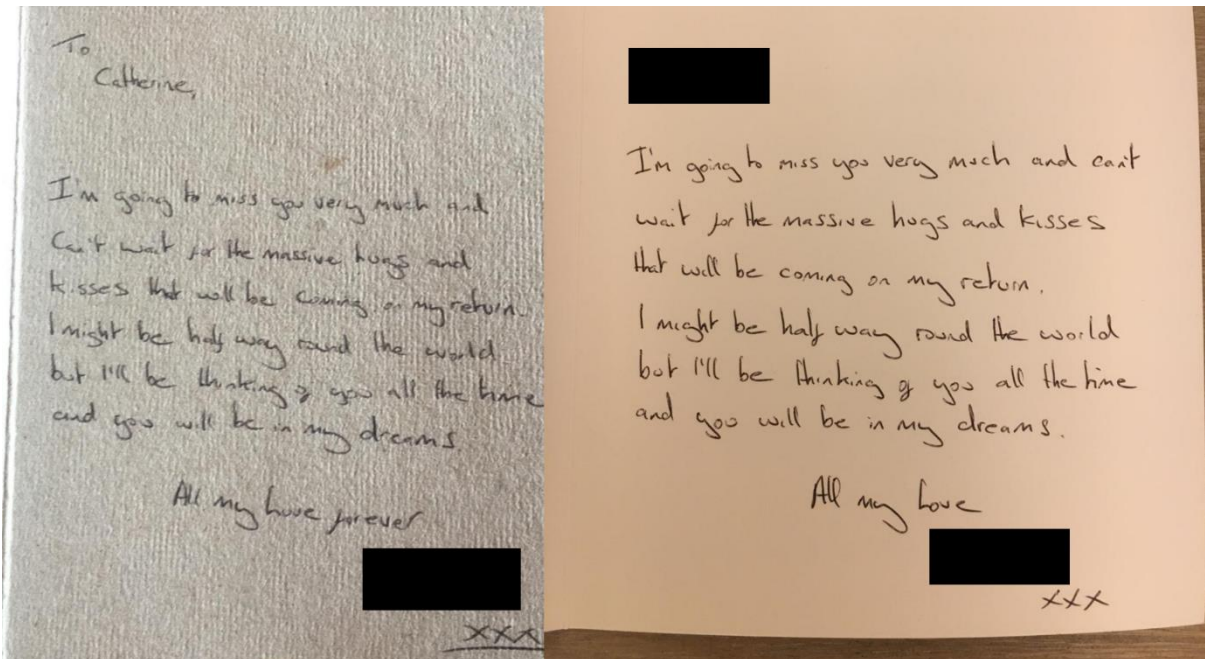 To
Catherine,
I'm going to miss you very much and
Can't wait for the massive hugs and
kisses that will be coming on my return.
I might be half way round the world
but I'll be thinking of you all the time
and you will be in my dreams.
All my love forever
xxx
I'm going to miss you very much and can't
wait for the massive hugs and kisses
that will be coming on my return.
I might be half way round the world
but I'll be thinking of you all the time
and you will be in my dreams.
All my love
xxx